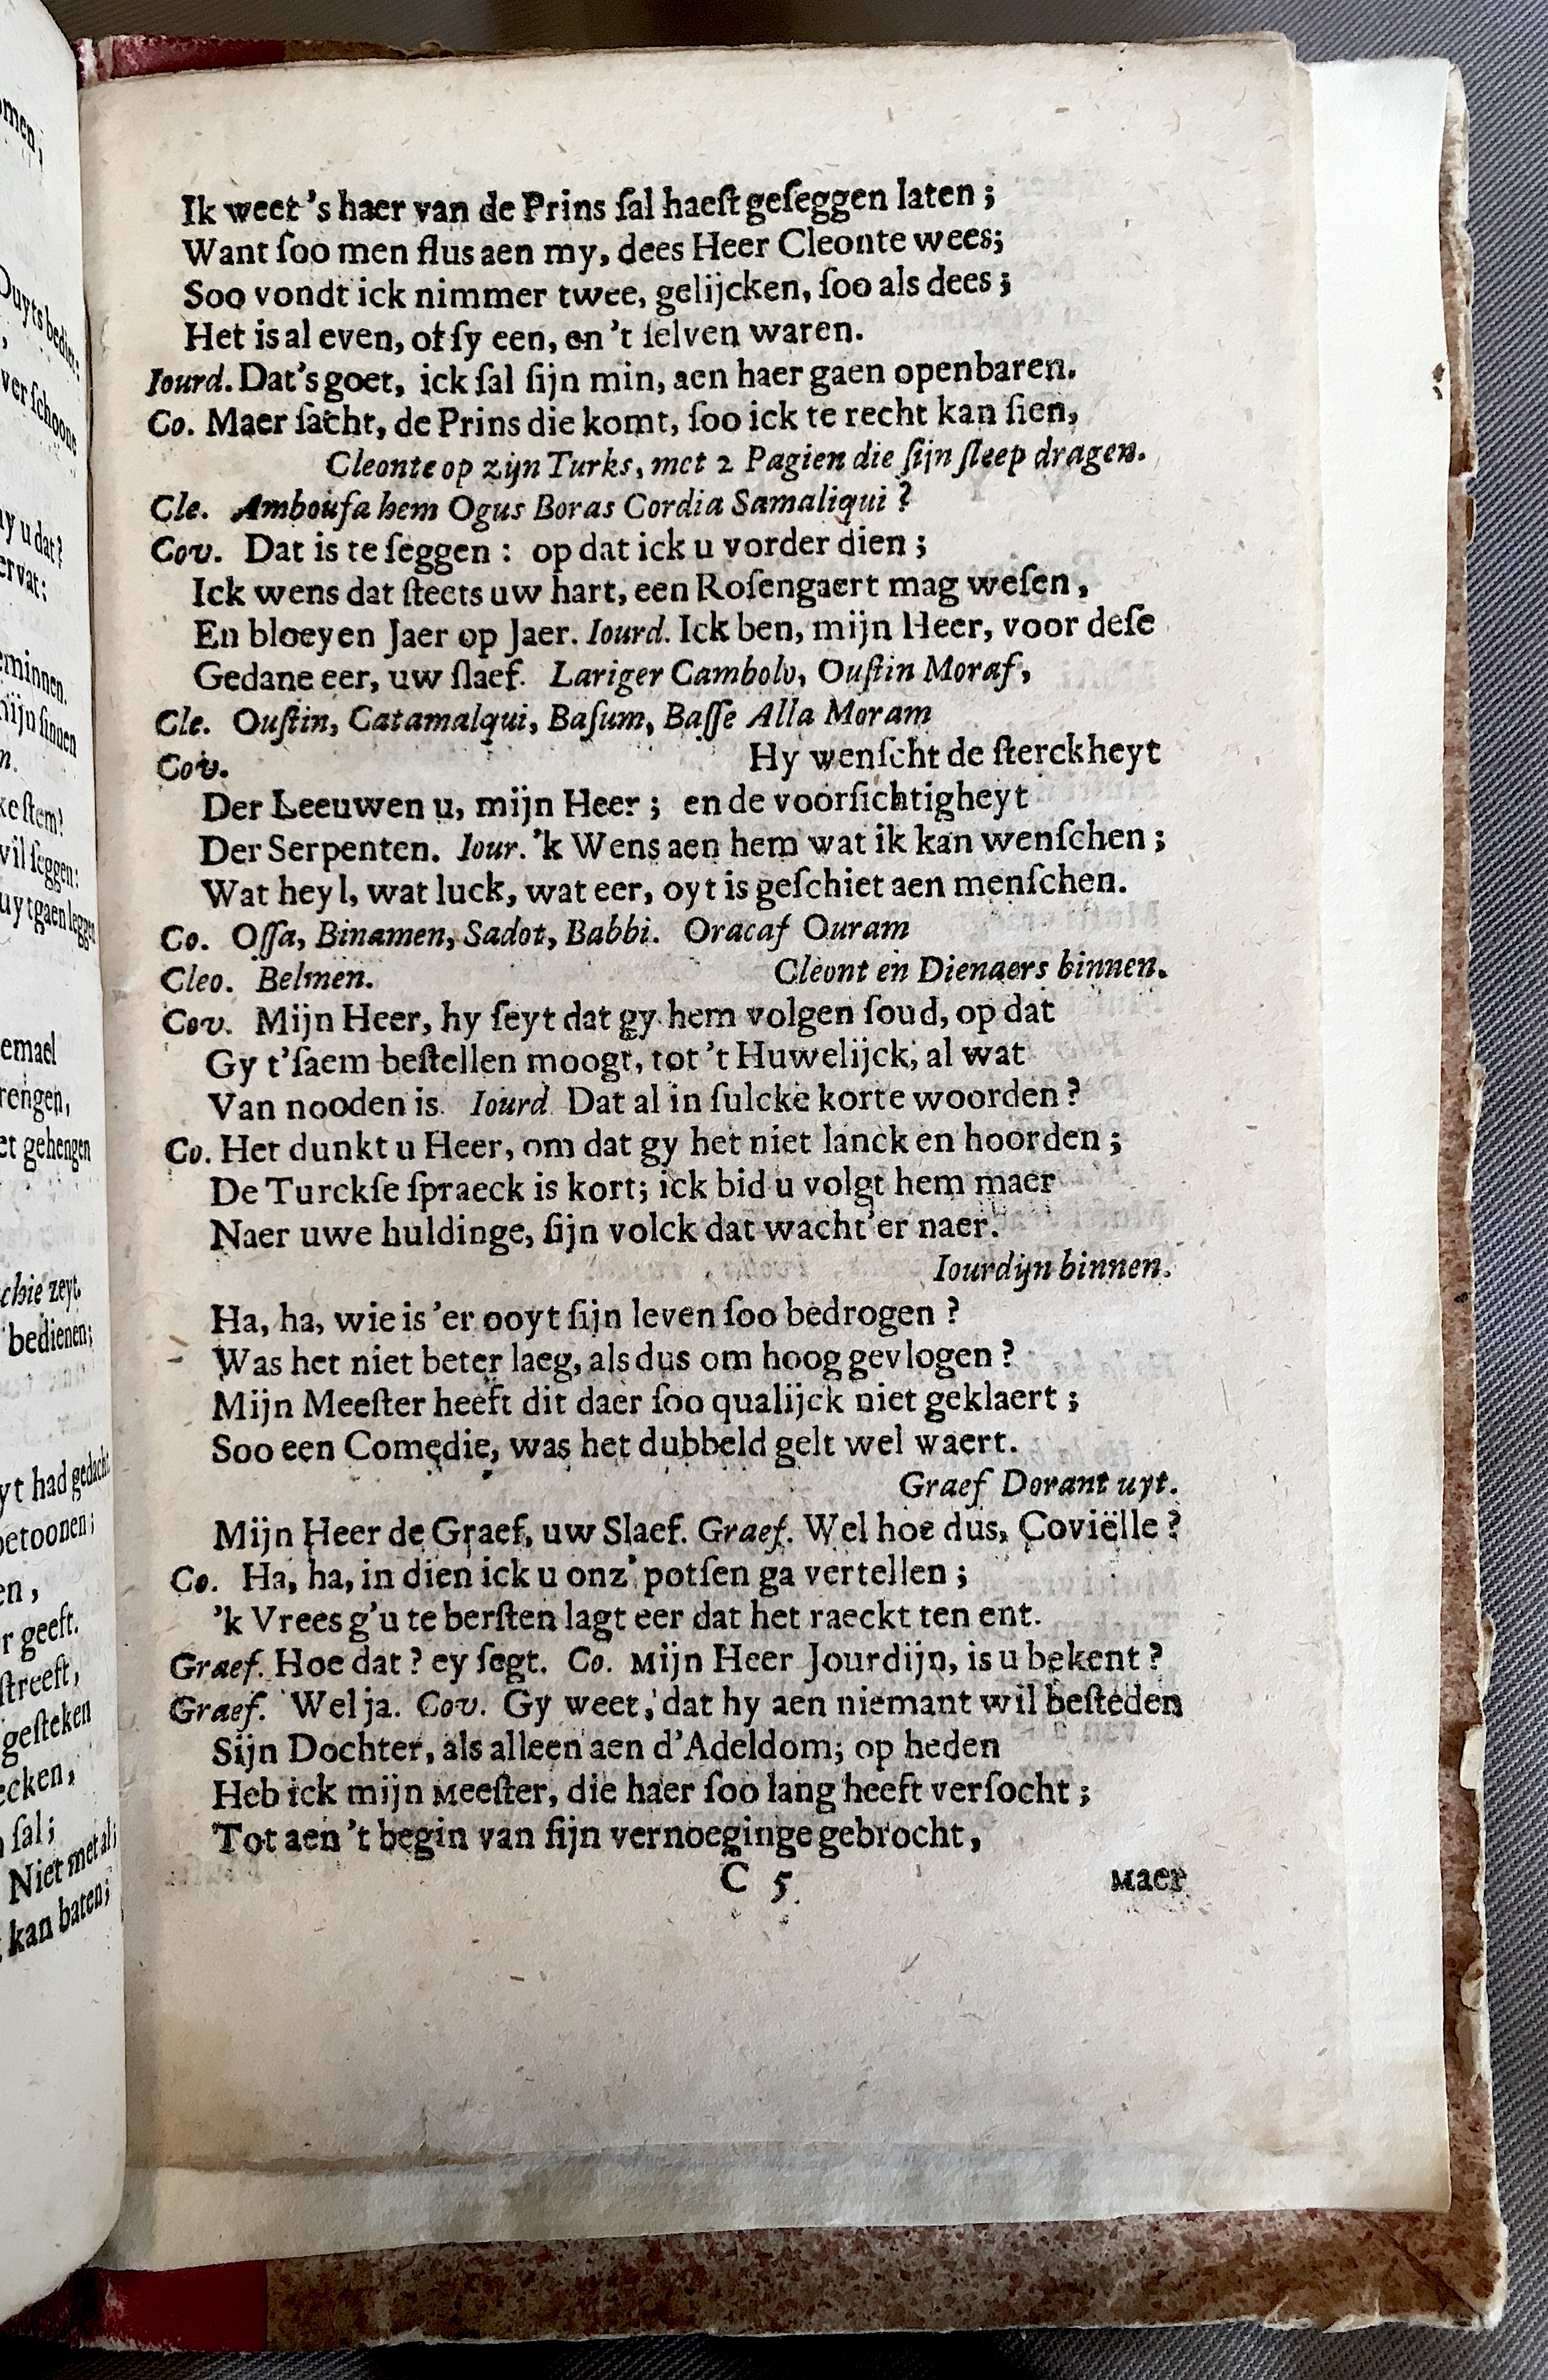 Ik weet 's haer van de Prins ſal haeſt geſeggen laten ;
Want ſoo men flus aen my, dees Heer Cleonte wees;
Soo vondt ick nimmer twee, gelijcken, ſoo als dees ;
Het is al even, of ſy een, en 't ſelven waren.
Iourd. Dat's goet, ick ſal ſijn min, aen haer gaen openbaren.
Co. Maer ſacht, de Prins die komt, ſoo ick te recht kan ſien,
Cleonte op zijn Turks, met 2 Pagien die ſijn ſleep dragen.
Cle. Amboufa hem Ogus Boras Cordia Samaliqui ?
Cov. Dat is te ſeggen : op dat ick u vorder dien ;
Ick wens dat ſteets uw hart, een Roſengaert mag weſen ,
En bloeyen Jaer op Jaer. Iourd. Ick ben, mijn Heer, voor deſe
Gedane eer, uw ſlaef. Lariger Cambolo, Ouſtin Moraf,
Cle. Ouſtin, Catamalqui, Baſum, Baſſe Alla Moram
Cov. Hy wenſcht de ſterckheyt
Der Leeuwen u, mijn Heer ; en de voorſichtigheyt
Der Serpenten. Iour. 'k Wens aen hem wat ik kan wenſchen ;
Wat heyl, wat luck, wat eer, oyt is geſchiet aen menſchen.
Co. Oſſa, Binamen, Sadot, Babbi. Oracaf Ouram
Cleo. Belmen. Cleont en Dienaers binnen.
Cov. Mijn Heer, hy ſeyt dat gy hem volgen ſoud, op dat
Gy t'ſaem beſtellen moogt, tot 't Huwelijck, al wat
Van nooden is. Iourd. Dat al in ſulcke korte woorden ?
Co. Het dunkt u Heer, om dat gy het niet lanck en hoorden ;
De Turckſe ſpraeck is kort; ick bid u volgt hem maer
Naer uwe huldinge, ſijn volck dat wacht'er naer.
Iourdijn binnen.
Ha, ha, wie is 'er ooyt ſijn leven ſoo bedrogen ?
Was het niet beter laeg, als dus om hoog gevlogen ?
Mijn Meeſter heeft dit daer ſoo qualijck niet geklaert ;
Soo een Comedie, was het dubbeld gelt wel waert.
Graef Dorant uyt.
Mijn Heer de Graef, uw Slaef. Graef. Wel hoe dus, Coviëlle ?
Co. Ha, ha, in dien ick u onz' potſen ga vertellen ;
'k Vrees g'u te berſten lagt eer dat het raeckt ten ent.
Graef. Hoe dat ? ey ſegt. Co. Mijn Heer Jourdijn, is u bekent ?
Graef. Wel ja. Cov. Gy weet, dat hy aen niemant wil beſteden
Sijn Dochter, als alleen aen d'Adeldom; op heden
Heb ick mijn Meeſter, die haer ſoo lang heeft verſocht ;
Tot aen 't begin van ſijn vernoeginge gebrocht,
C 5
Maer